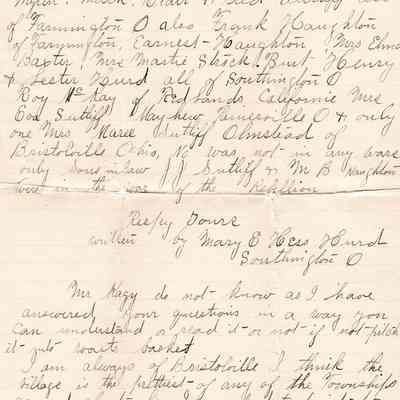 of Farmington O also Frank Haughton
of Farmington, Earnest Haughton Mrs Elma
Baxter, Mrs Martie Strock. Burt Henry
& Lester Hurd all of Southington O
Roy McKay of Redlands, California Mrs
Eva Sutliff Mayhew Jamesville O & only
one Mrs. Marce Sutliff Olmstead of
Bristolville Ohio, No was not in any wars
only Sons in law J J Sutliff & M B Naughton
were in the war of the Rebellion
Respy Yours
written by Mary E Hess Hurd
Southington O
Mr Kagy do not know as I have
answered your questions in a way you
can understand or read it or not if not pitch
it into waste basket
I am always of Bristolville I think the
village is the prettiest of any of the Townships